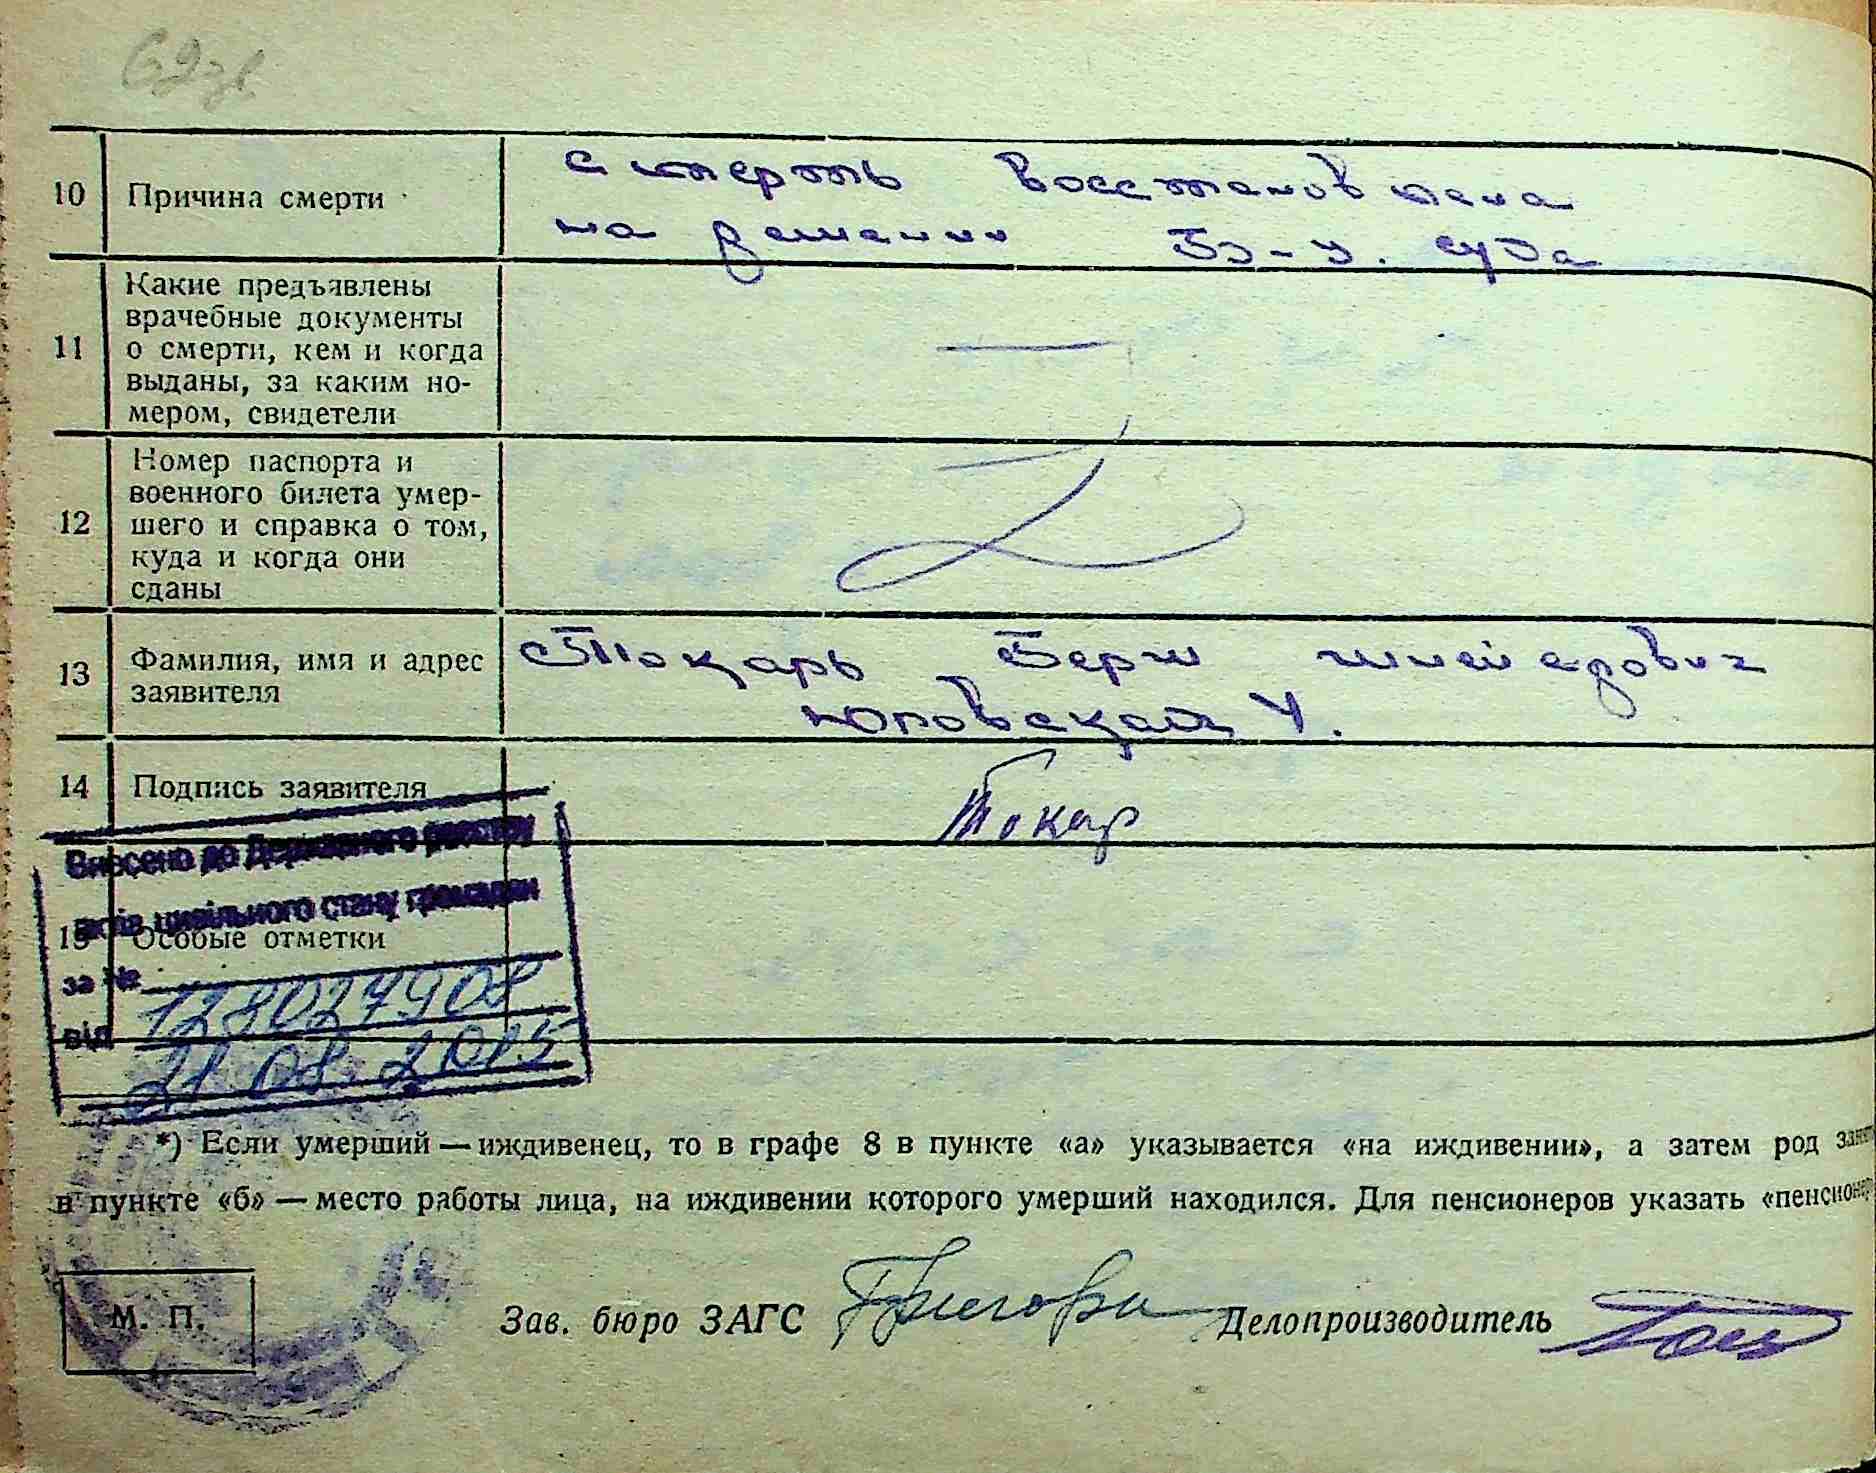 10 Причина смерти
смерть восстановлена
на решении Бэ-У. суда
11 Какие предъявлены
врачебные документы
о смерти, кем и когда
выданы, за каким но-
мером, свидетели
—
12 Номер паспорта и
военного билета умер-
шего и справка о том,
куда и когда они
сданы
—
13 Фамилия, имя и адрес
заявителя
Токарь Берш Шнеерович
Юровская 4.
14 Подпись заявителя
Токар
Внесено до Державного реєстру
актів цивільного стану громадян
15 Особые отметки
за № 128027908
від 21.08.2015
*) Если умерший — иждивенец, то в графе 8 в пункте «а» указывается «на иждивении», а затем род
в пункте «б» — место работы лица, на иждивении которого умерший находился. Для пенсионеров указать «пенсионер
М. П.
Зав. бюро ЗАГС Делопроизводитель